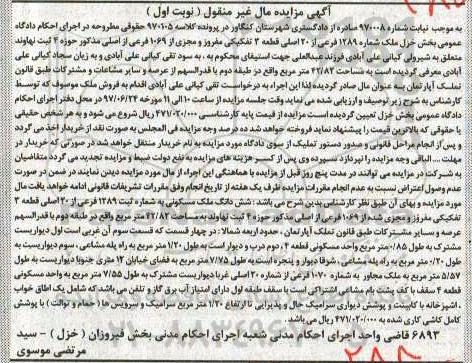 آگهی مزایده مال غیر منقول ( نوبت اول )
به موجب نیابت شماره ۹۷۰۰۰۸ صادره از دادگستری شهرستان کنگاور در پرونده کلاسه ۹۷۰۱۰۵ حقوقی مطروحه در اجرای احکام دادگاه
عمومی بخش خزل ملک شماره ۱۲۸۹ فرعی از ۲۰ اصلی قطعه ۳ تفکیکی مفروز و مجزی از ۱۰۶۹ فرعی از اصلی مذکور حوزه ۴ ثبت نهاوند
متعلق به شیرولی کیانی علی آبادی فرزند عبدالعلی جهت استیفای محکوم به ، به سود تقی کیانی علی آبادی و به زیان سجاد کیانی علی
آبادی معرفی گردیده است به مساحت ۴۲/۸۲ متر مربع واقع در طبقه دوم با قدرالسهم از عرصه و سایر مشاعات و مشترکات طبق قانون
تملک آپارتمان به عنوان مال صادر گردیده لذا این اجراء به درخواست تقی کیانی علی آبادی اقدام به فروش ملک موصوف که توسط
کارشناس به شرح زیر توصیف و ارزیابی شده می نماید وقت جلسه مزایده از ساعت ۱۰ الی ۱۱ مورخه ۹۷/۰۶/۲۴ در محل دفتر اجرای احکام
دادگاه عمومی بخش خزل تعیین گردیده است مزایده از قیمت پایه کارشناسی ۴۷۱/۰۲۰/۰۰۰ ریال شروع می شود و هر شخص حقیقی
یا حقوقی که بالاترین قیمت را پیشنهاد نماید فروخته خواهد شد ده درصد وجه مزایده فی المجلس به صورت نقد از خریدار اخذ می گردد
و پس از انجام مراحل قانونی و صدور دستور تملیک از سوی دادگاه مورد مزایده به نام خریدار منتقل خواهد شد در صورتی که خریدار در
مهلت .... الباقی وجه مزایده را نپردازد سپرده وی پس از کسر هزینه های مزایده به نفع دولت ضبط و مزایده تجدید می گردد متقاضیان
به شرکت در مزایده می توانند در مدت پنج روز قبل از مزایده با هماهنگی این اجراء از مال مورد مزایده دیدن نمایند در ضمن در صورت
عدم وصول اعتراض نسبت به عدم انجام مقررات مزایده ظرف یک هفته از تاریخ انجام وفق مقررات تشریفات قانونی ادامه خواهد یافت مال
مورد مزایده و بهای آن طبق نظر کارشناس بدین شرح می باشد : شش دانگ ملک مسکونی به شماره ثبت ۱۲۸۹ فرعی از ۲۰ اصلی قطعه ۳
تفکیکی مفروز و مجزی شده از ۱۰۶۹ فرعی از اصلی مذکور حوزه ۴ ثبت نهاوند به مساحت ۴۲/۸۲ متر مربع واقع در طبقه دوم با قدرالسهم
عرصه و سایر مشترکات طبق قانون تملک آپارتمان ، حدود اربعه شمالا : در چهار قسمت که قسمت سوم آن غربی است اول دیواریست
مشترک به طول ۰/۸۵ متر به واحد مسکونی قطعه ۴ ، دوم درب و دیوار است به طول ۱/۲۰ متر به راه پله مشاعی ، سوم دیواریست به
طول ۰/۲۰ متر به راه پله مشاعی ، شرقا دیوار و پنجره است به طول ۷/۷۵ متر به فضای خیابان ۱۲ متری جنوبا دیواریست به طول
۵/۵۷ متر به ملک مجاور به شماره ۱۰۷۰ فرعی از شماره ۲۰ اصلی غربا دیواریست مشترک به طول ۷/۵۵ متر به واحد مسکونی
قطعه ۴ سقف با کف پشت بام مشاعی اشتراکی است با سقف طبقه اول دارای امتیاز آب برق گاز و تلفن می باشد که شامل یک اطاق خواب
، آشپزخانه با کابینت و پوشش دیواری سرامیک حال و پذیرایی تا ارتفاع ۱/۲۰ متر مربع سرامیک و سرویس ها ( حمام و توالت ) با پوشش
کامل کاشی کاری شده به ۴۷۱/۰۲۰/۰۰۰ ریال می باشد.
۶۸۹۳ قاضی واحد اجرای احکام مدنی شعبه اجرای احکام مدنی بخش فیروزان ( خزل ) - سید
مرتضی موسوی